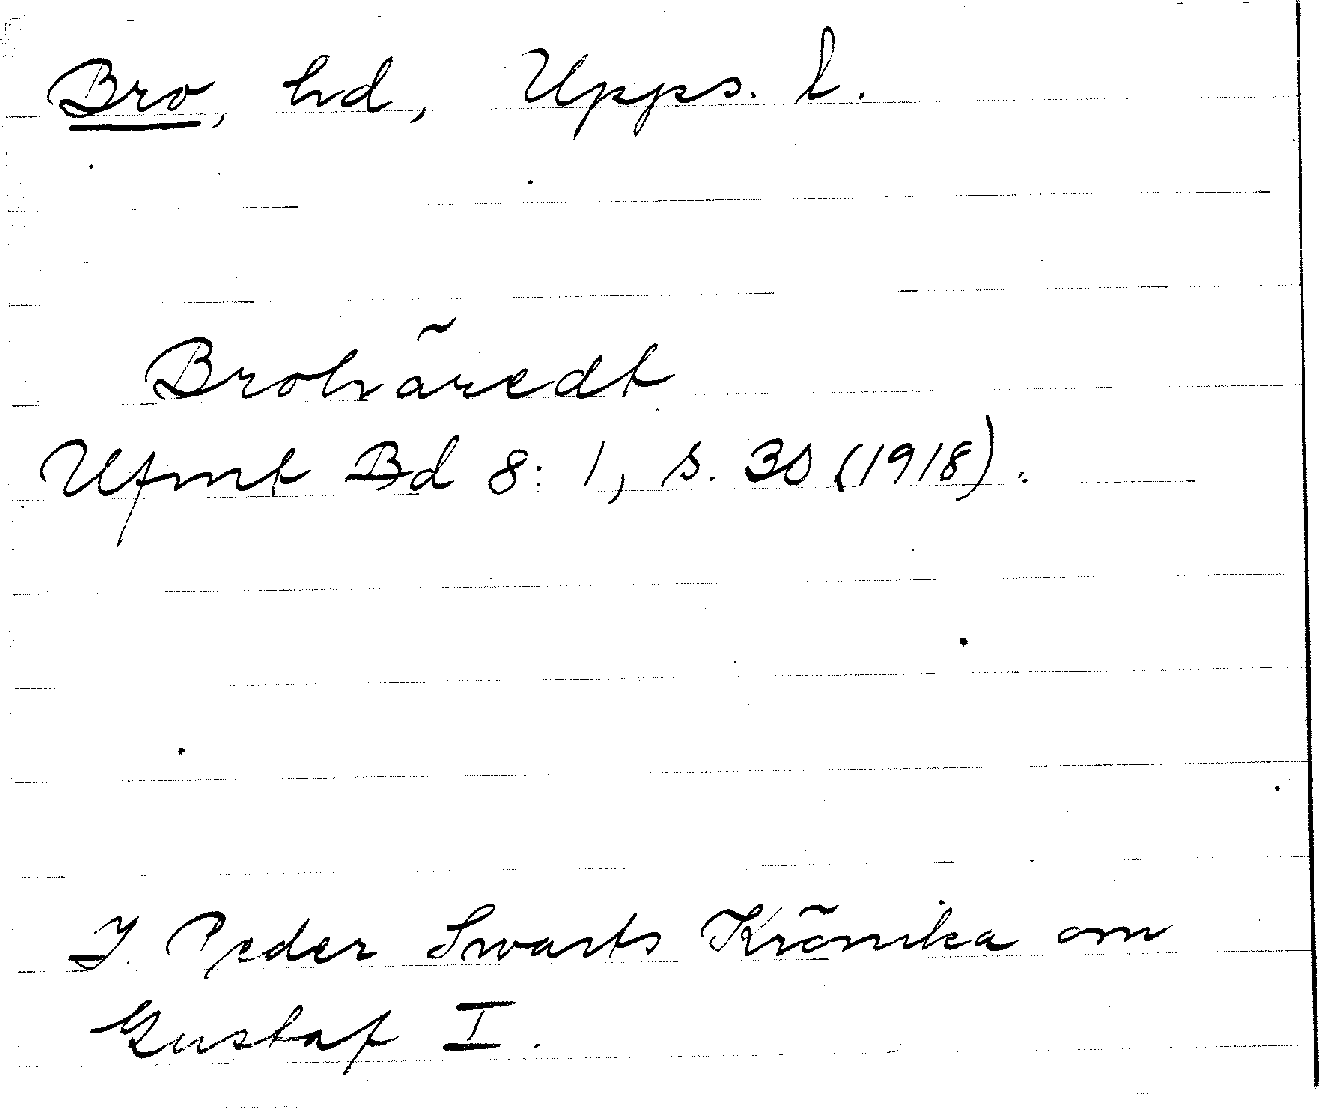 Bro, hd, Upps. l.
Brohäredt
Ufmt Bd 8: 1, s. 30 (1918).
I Peder Swarts Krönika om
Gustaf I.